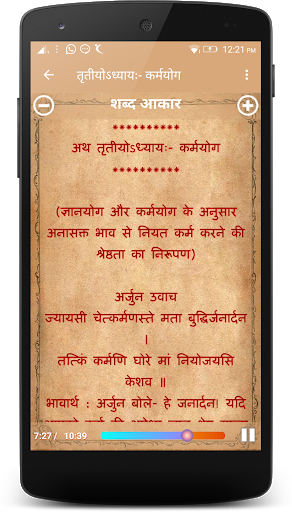 12:21 PM
तृतीयोऽध्यायः- कर्मयोग
शब्द आकार
**********
अथ तृतीयोऽध्यायः- कर्मयोग
**********
(ज्ञानयोग और कर्मयोग के अनुसार
अनासक्त भाव से नियत कर्म करने की
श्रेष्ठता का निरूपण)
अर्जुन उवाच
ज्यायसी चेत्कर्मणस्ते मता बुद्धिर्जनार्दन
।
तत्किं कर्मणि घोरे मां नियोजयसि
केशव ॥
भावार्थ : अर्जुन बोले- हे जनार्दन! यदि
आपको कर्म की
7:27 / 10:39